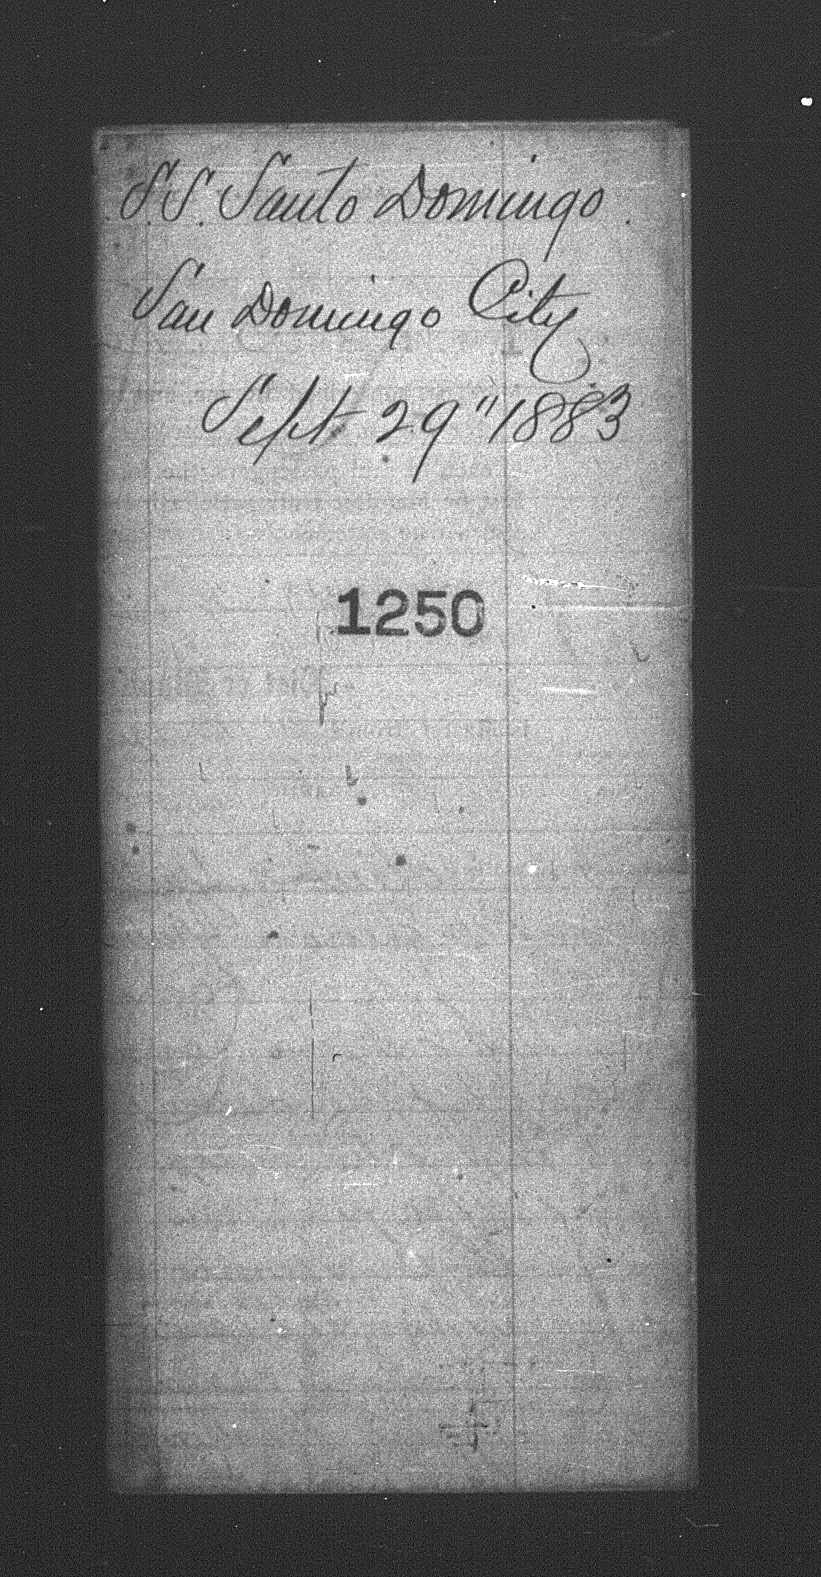 S.S. Santo Domingo.
San Domingo City
Sept 29" 1883
1250